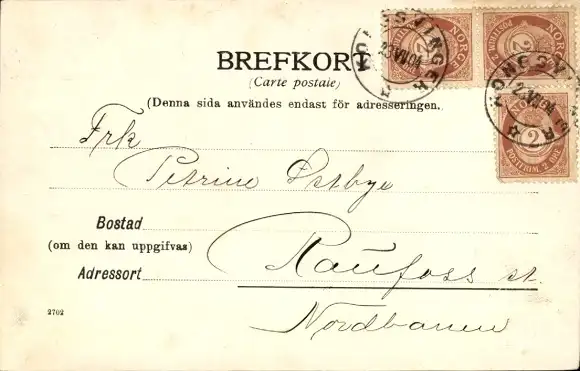 BREFKORT
(Carte postale)
(Denna sida användes endast för adresseringen.
Frk
Petrine Østbye
Bostad
(om den kan uppgifvas)
Adressort
Raufoss st.
Nordbanen
2702
NORGE
2
POSTFRIM. 2 ØRE
KONGSVINGER
23 VII 04